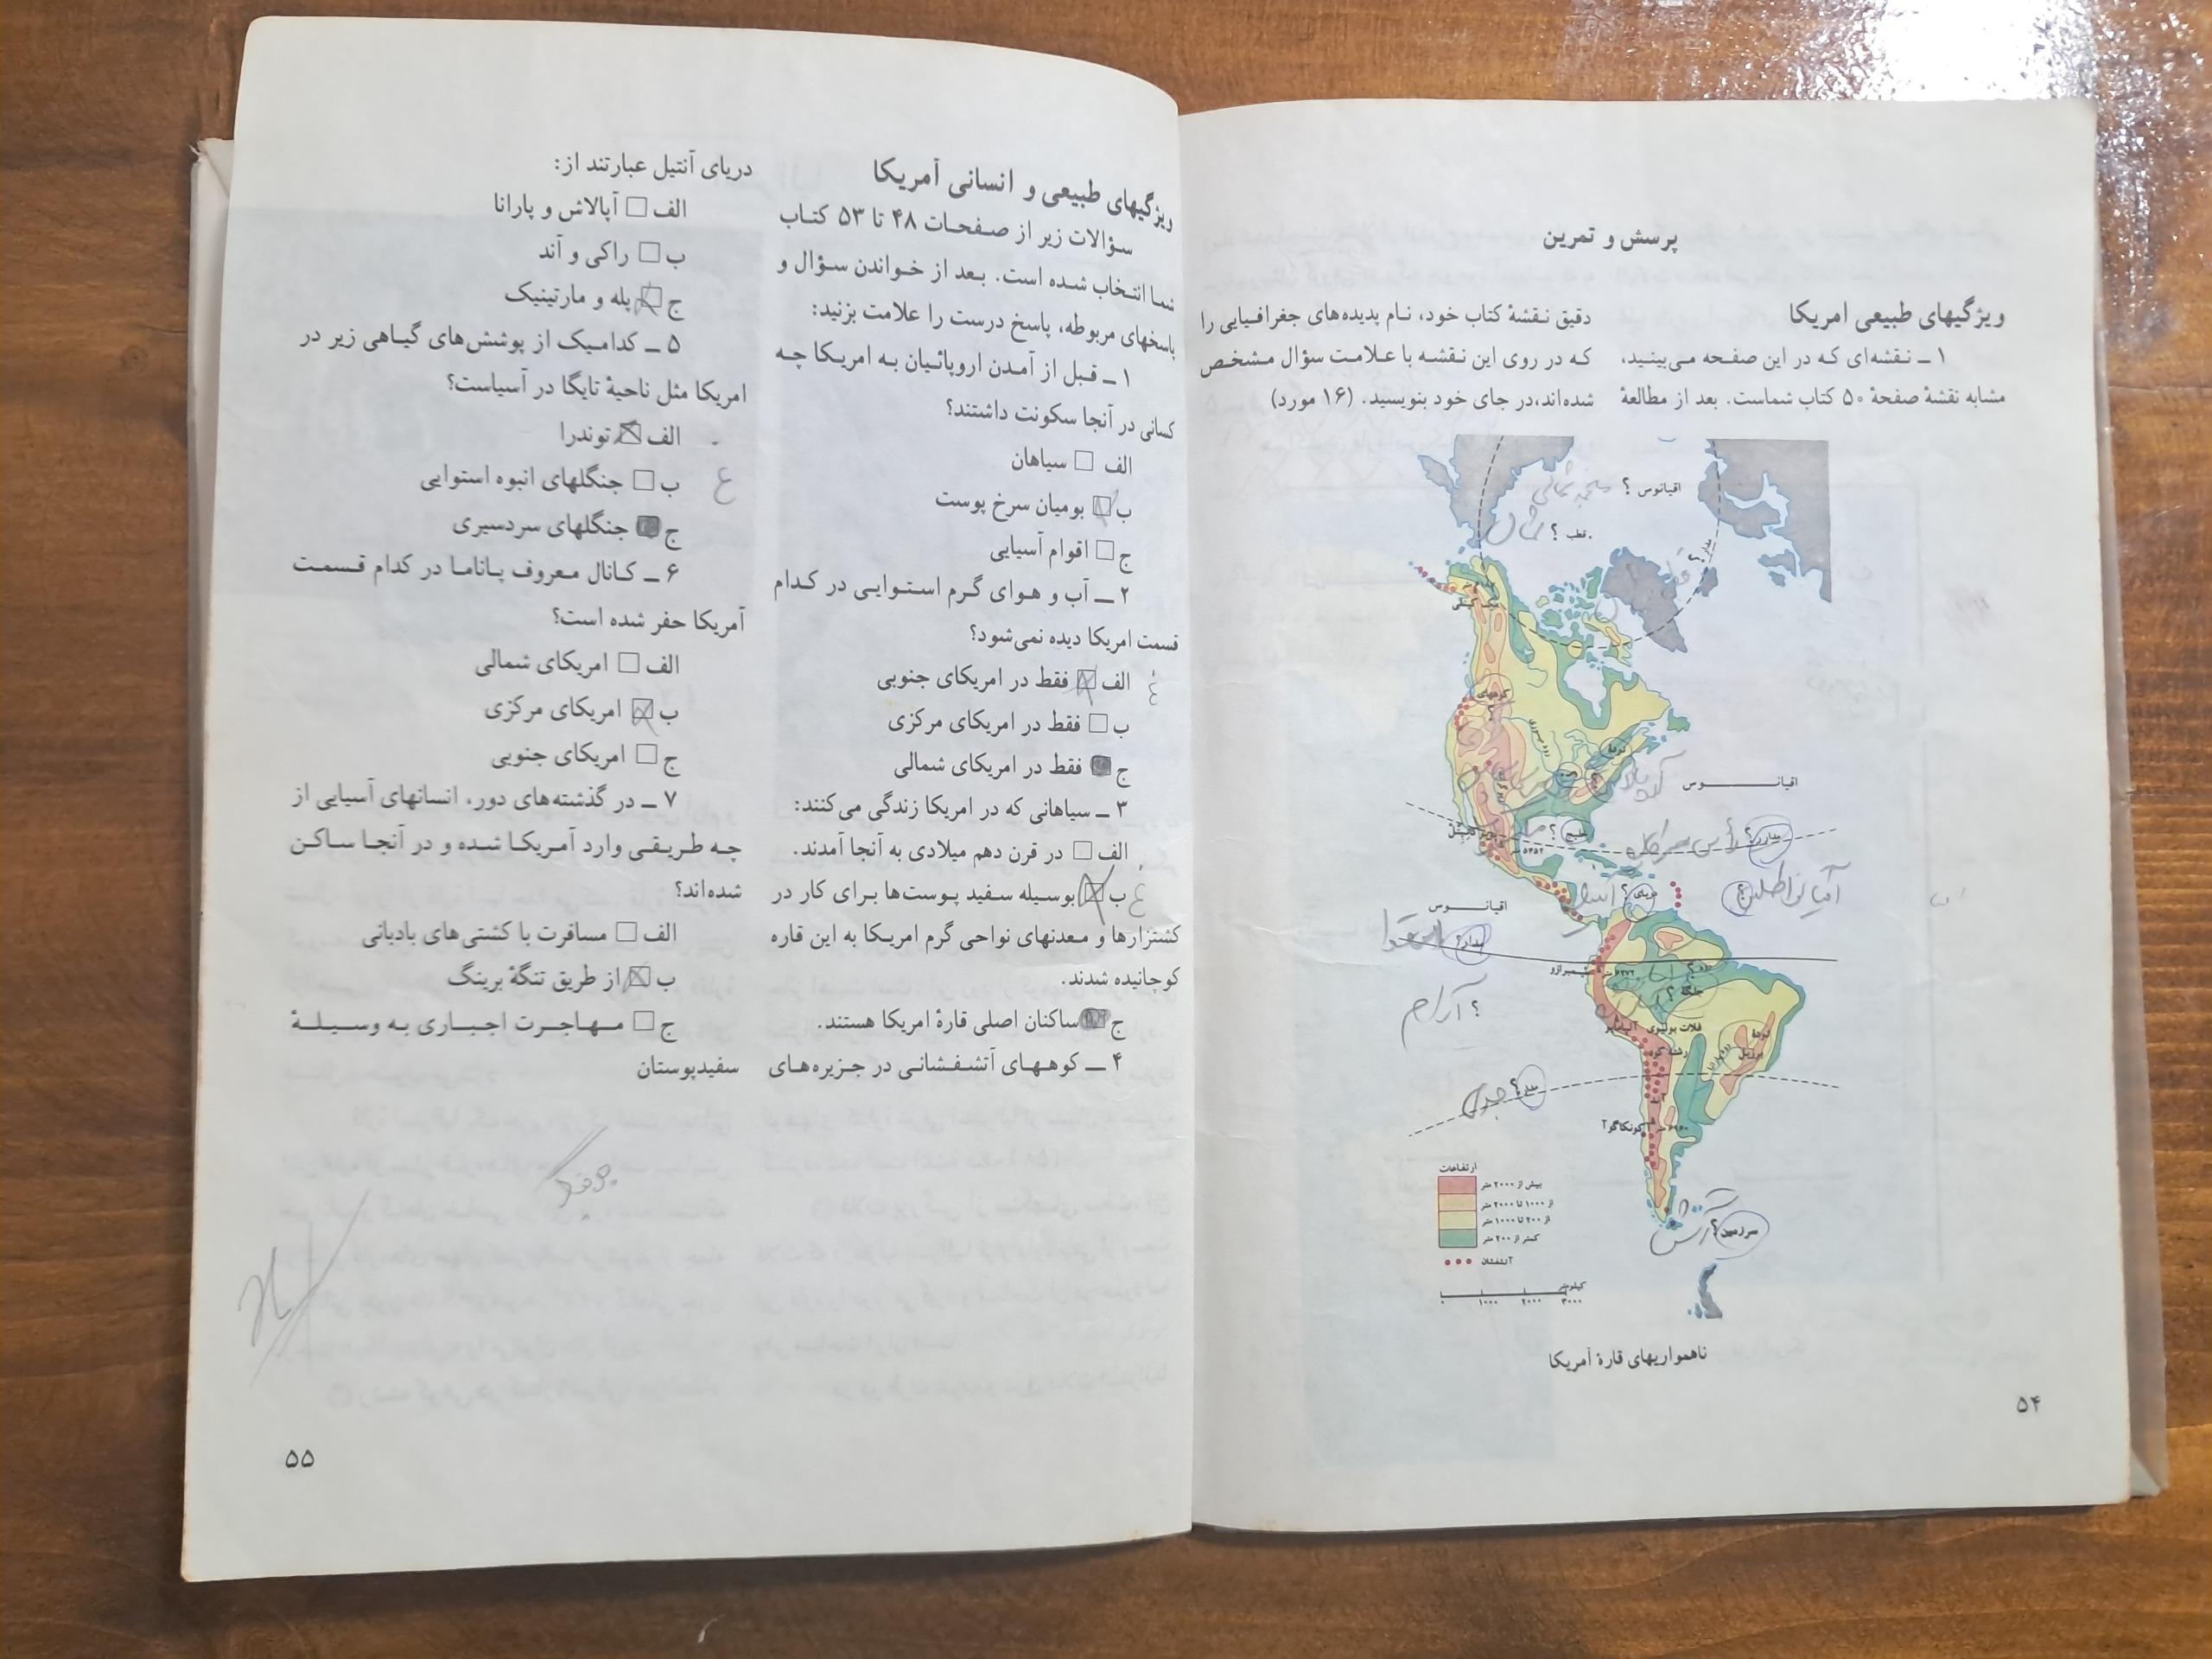 پرسش و تمرین
ویژگیهای طبیعی امریکا
۱ ــ نقشه‌ای که در این صفحه می‌بینید،
مشابه نقشهٔ صفحهٔ ۵۰ کتاب شماست. بعد از مطالعهٔ
دقیق نقشهٔ کتاب خود، نام پدیده‌های جغرافیایی را
که در روی این نقشه با علامت سؤال مشخص
شده‌اند،در جای خود بنویسید. (۱۶ مورد)
اقیانوس ؟
قطب ؟ شمال
مدار ؟
کوههای
رود میسوری
اقیانوس
خلیج ؟
۵۴۵۲ متر
مدار ؟ رأس سرطان
دریای ؟
؟ اقیانوس اطلس
اقیانوس
مدار ؟ استوا
؟ آرام
شیمبرازو
۶۲۷۲ متر
رود ؟
جلگهٔ ؟
فلات بولیوی
رشته کوه
آند
برزیل
مدار ؟ جدی
آکونکاگوآ
۶۹۶۰ متر
سرزمین ؟ آتش
ارتفاعات
بیش از ۲۰۰۰ متر
از ۱۰۰۰ تا ۲۰۰۰ متر
از ۲۰۰ تا ۱۰۰۰ متر
کمتر از ۲۰۰ متر
آتشفشان
کیلومتر
۰ ۱۰۰۰ ۲۰۰۰ ۳۰۰۰
ناهمواریهای قارهٔ آمریکا
۵۴
ویژگیهای طبیعی و انسانی آمریکا
سؤالات زیر از صفحات ۴۸ تا ۵۳ کتاب
شما انتخاب شده است. بعد از خواندن سؤال و
پاسخهای مربوطه، پاسخ درست را علامت بزنید:
۱ ــ قبل از آمدن اروپائیان به امریکا چه
کسانی در آنجا سکونت داشتند؟
الف □ سیاهان
ب □ بومیان سرخ پوست
ج □ اقوام آسیایی
۲ ــ آب و هوای گرم استوایی در کدام
قسمت امریکا دیده نمی‌شود؟
الف □ فقط در امریکای جنوبی
ب □ فقط در امریکای مرکزی
ج □ فقط در امریکای شمالی
۳ ــ سیاهانی که در امریکا زندگی می‌کنند:
الف □ در قرن دهم میلادی به آنجا آمدند.
ب □ بوسیله سفید پوست‌ها برای کار در
کشتزارها و معدنهای نواحی گرم امریکا به این قاره
کوچانیده شدند.
ج □ ساکنان اصلی قارهٔ امریکا هستند.
۴ ــ کوههای آتشفشانی در جزیره‌های
دریای آنتیل عبارتند از:
الف □ آپالاش و پارانا
ب □ راکی و آند
ج □ پله و مارتینیک
۵ ــ کدامیک از پوشش‌های گیاهی زیر در
امریکا مثل ناحیهٔ تایگا در آسیاست؟
الف □ توندرا
ب □ جنگلهای انبوه استوایی
ج □ جنگلهای سردسیری
۶ ــ کانال معروف پاناما در کدام قسمت
آمریکا حفر شده است؟
الف □ امریکای شمالی
ب □ امریکای مرکزی
ج □ امریکای جنوبی
۷ ــ در گذشته‌های دور، انسانهای آسیایی از
چه طریقی وارد آمریکا شده و در آنجا ساکن
شده‌اند؟
الف □ مسافرت با کشتی‌های بادبانی
ب □ از طریق تنگهٔ برینگ
ج □ مهاجرت اجباری به وسیلهٔ
سفیدپوستان
۵۵